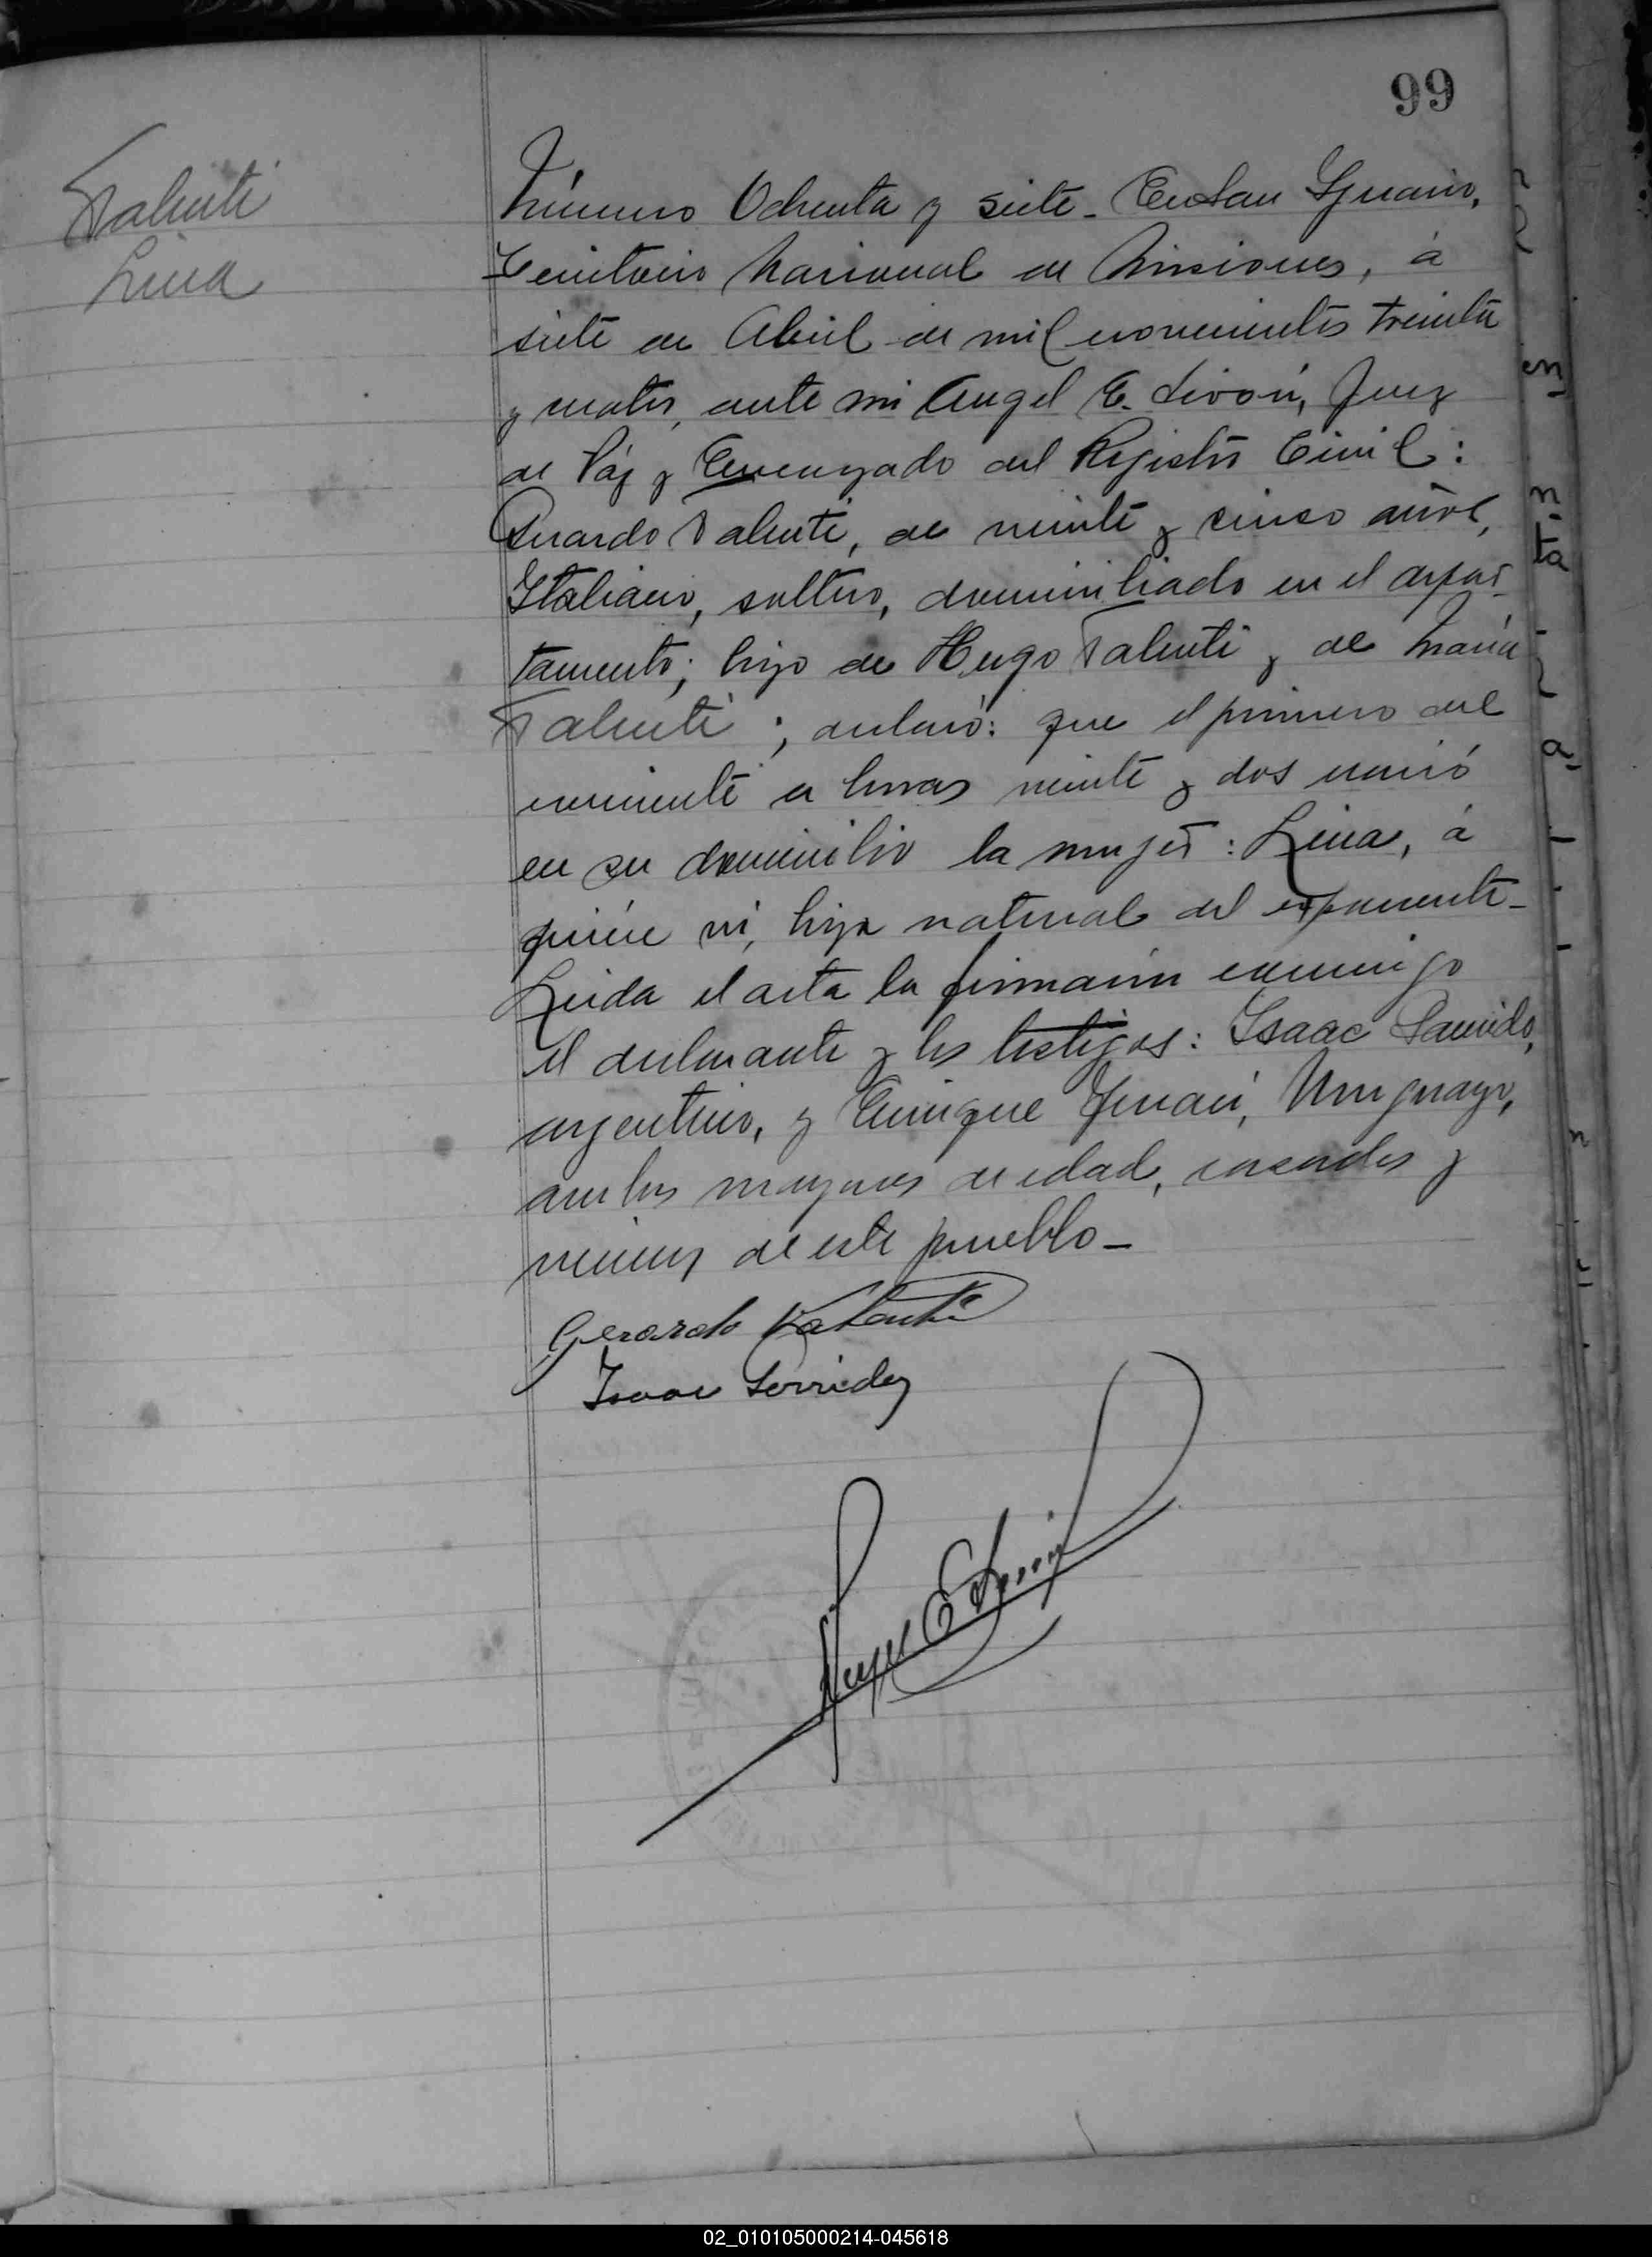 99
Valenti
Lina
Número Ochenta y siete - En San Ignacio,
Territorio Nacional de Misiones, á
siete de Abril de mil novecientos treinta
y cuatro, ante mi Angel E. Livoni, Juez
de Páz y Encargado del Registro Civil:
Gerardo Valenti, de veinte y cinco años,
Italiano, soltero, domiciliado en el depar-
tamento; hijo de Hugo Valenti y de María
Valenti ; declaró: que el primero del
corriente a horas veinte y dos nació
en su domicilio la mujer: Lina, á
quién vi, hija natural del exponente -
Leida el acta la firmarón conmigo
el declarante y los testigos: Isaac
argentino, y Enrique Uruguayo,
ambos mayores de edad, casados y
vecinos de este pueblo -
Gerardo Valenti
Isaac
Angel E
02_010105000214-045618